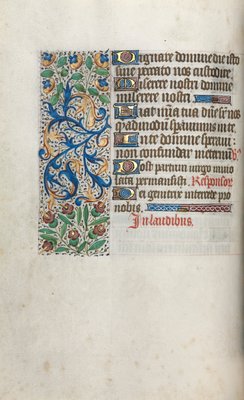 Dignare domine die isto
sine peccato nos custodire
Miserere nostri domine
miserere nostri
Fiat mīa tua dn̄e sup nos
quēadmodū sperauimus in te
In te domine speraui
non confundar in eternū
Post partum uirgo inuio
lata permansisti. Responsor
Dei genitrix intercede pro
nobis.
In laudibus.